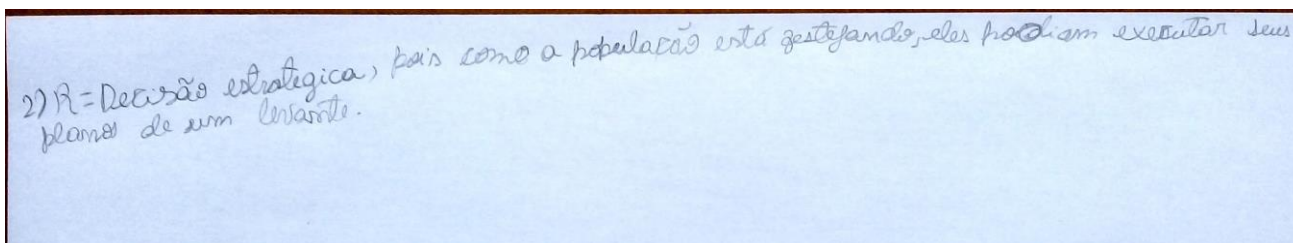 2) R = Decisão estrategica, pois como a população está festejando, eles podiam executar seus
planos de um levante.